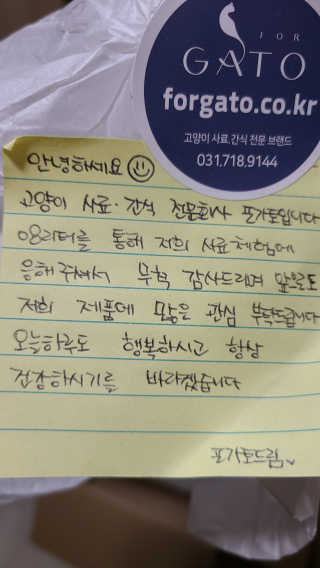 FOR
GATO
forgato.co.kr
고양이 사료,간식 전문 브랜드
031.718.9144
안녕하세요
고양이 사료·간식 전문회사 포가토입니다
통해 저희 사료체험에
응해주셔서 무척 감사드리며 앞으로도
저희 제품에 많은 관심 부탁드립니다
오늘하루도 행복하시고 항상
건강하시기를 바라겠습니다
포가토드림